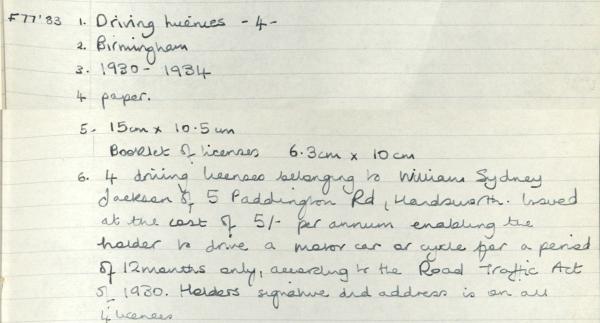 F77'83 1. Driving licences - 4 -
2. Birmingham
3. 1930 - 1934
4 paper.
5. 15cm x 10.5cm
Booklet of licenses 6.3cm x 10cm
6. 4 driving licenses belonging to William Sydney
Jackson of 5 Paddington Rd, Handsworth. Issued
at the cost of 5/- per annum enabling the
holder to drive a motor car or cycle for a period
of 12 months only, according to the Road Traffic Act
of 1930. Holders signature and address is on all
4 licences